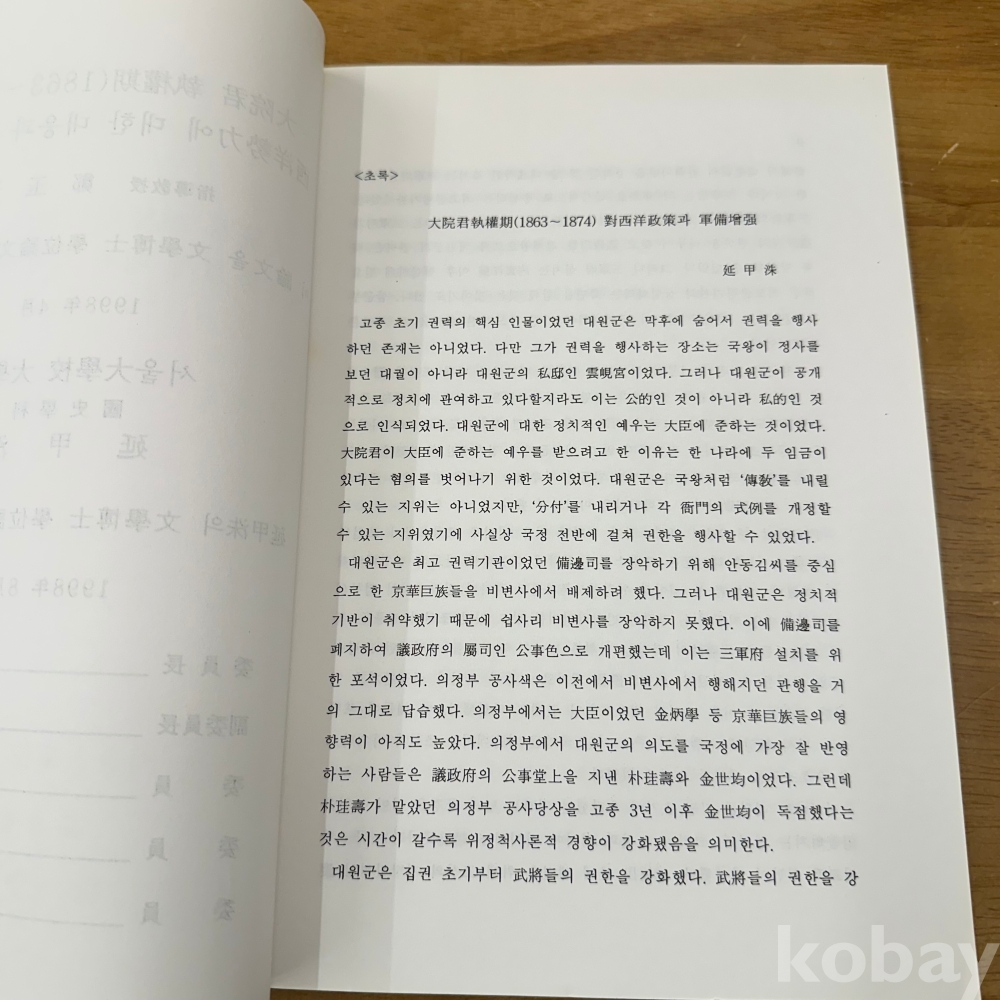 <초록>
大院君執權期(1863~1874) 對西洋政策과 軍備增强
延甲洙
고종 초기 권력의 핵심 인물이었던 대원군은 막후에 숨어서 권력을 행사
하던 존재는 아니었다. 다만 그가 권력을 행사하는 장소는 국왕이 정사를
보던 대궐이 아니라 대원군의 私邸인 雲峴宮이었다. 그러나 대원군이 공개
적으로 정치에 관여하고 있다할지라도 이는 公的인 것이 아니라 私的인 것
으로 인식되었다. 대원군에 대한 정치적인 예우는 大臣에 준하는 것이었다.
大院君이 大臣에 준하는 예우를 받으려고 한 이유는 한 나라에 두 임금이
있다는 혐의를 벗어나기 위한 것이었다. 대원군은 국왕처럼 '傳敎'를 내릴
수 있는 지위는 아니었지만, '分付'를 내리거나 각 衙門의 式例를 개정할
수 있는 지위였기에 사실상 국정 전반에 걸쳐 권한을 행사할 수 있었다.
대원군은 최고 권력기관이었던 備邊司를 장악하기 위해 안동김씨를 중심
으로 한 京華巨族들을 비변사에서 배제하려 했다. 그러나 대원군은 정치적
기반이 취약했기 때문에 쉽사리 비변사를 장악하지 못했다. 이에 備邊司를
폐지하여 議政府의 屬司인 公事色으로 개편했는데 이는 三軍府 설치를 위
한 포석이었다. 의정부 공사색은 이전에서 비변사에서 행해지던 관행을 거
의 그대로 답습했다. 의정부에서는 大臣이었던 金炳學 등 京華巨族들의 영
향력이 아직도 높았다. 의정부에서 대원군의 의도를 국정에 가장 잘 반영
하는 사람들은 議政府의 公事堂上을 지낸 朴珪壽와 金世均이었다. 그런데
朴珪壽가 맡았던 의정부 공사당상을 고종 3년 이후 金世均이 독점했다는
것은 시간이 갈수록 위정척사론적 경향이 강화됐음을 의미한다.
대원군은 집권 초기부터 武將들의 권한을 강화했다. 武將들의 권한을 강
kobay